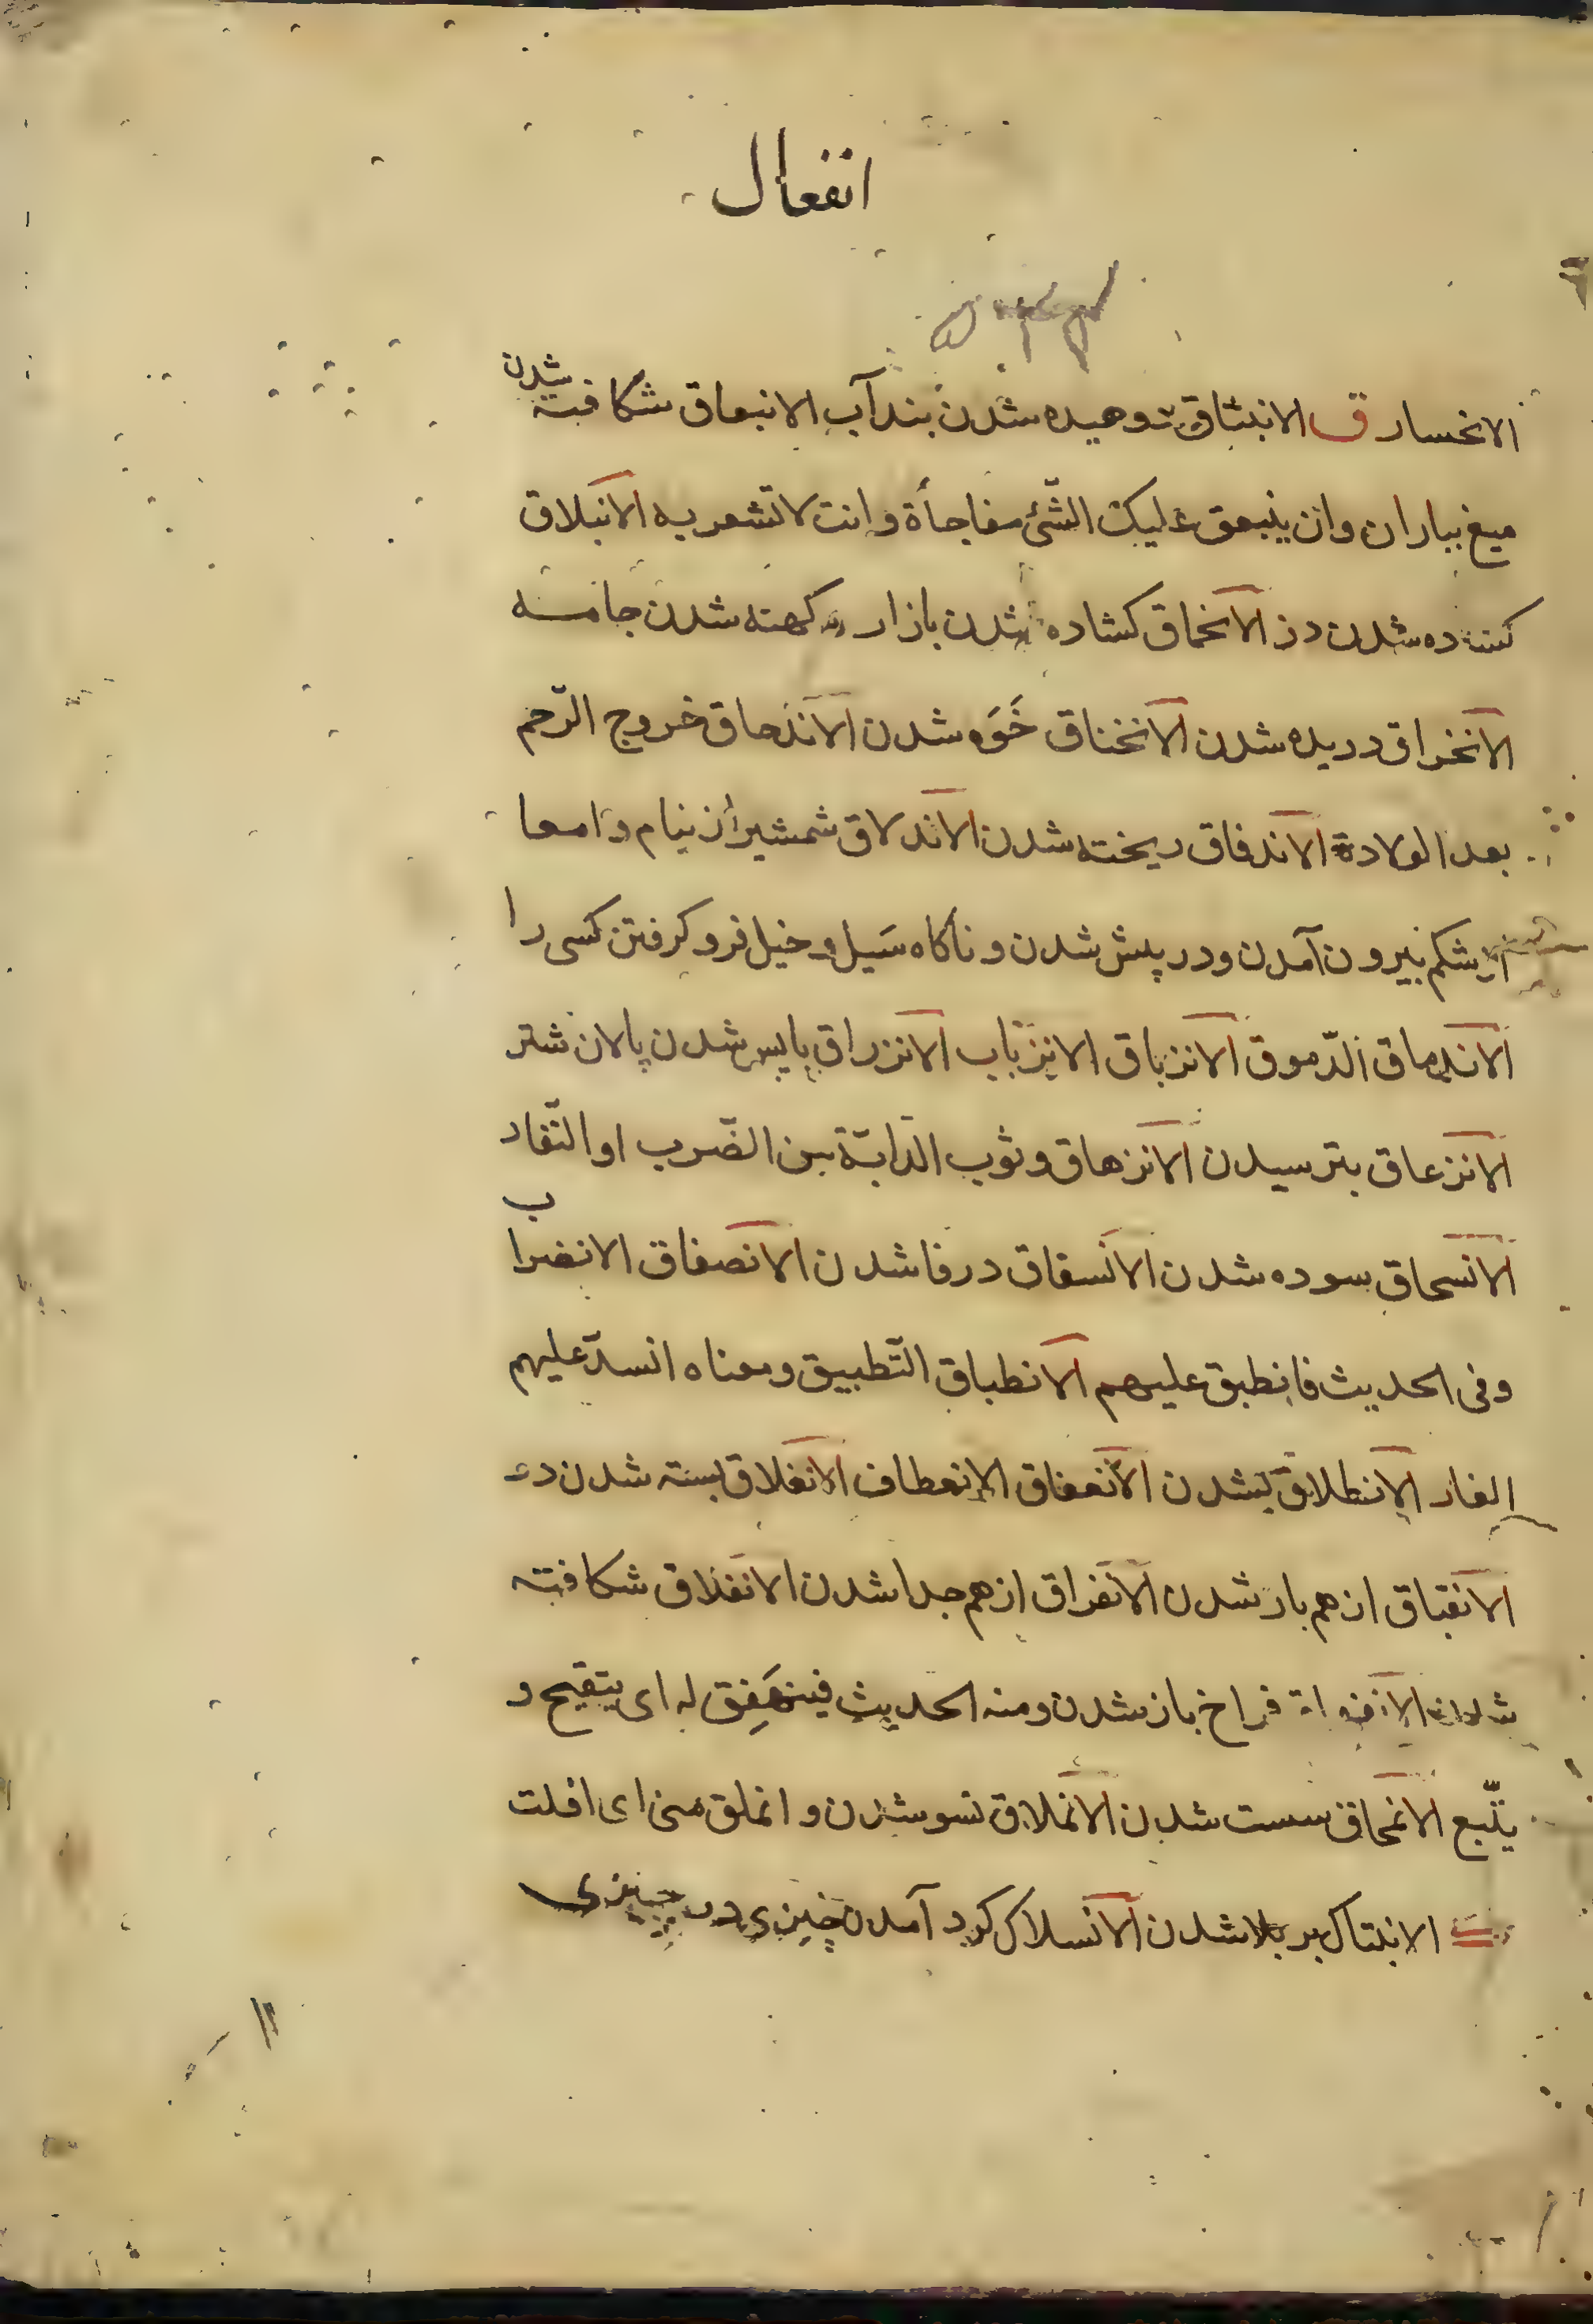 انفعال
الانخسار ق الانبثاق وهیده شدن بند آب الانبعاق شکافته شدن
میغ بباران وان ینبعق علیک الشّئ مفاجأة وانت لا تشعر به الانبلاق
کشاده شدن در الانحماق کشاده شدن بازار و کهنه شدن جامه
الانخراق دریده شدن الانخناق خَوَه شدن الاندحاق خروج الرّحم
بعد الولادة الاندفاق ریخته شدن الاندلاق شمشیر از نیام و امعا
از شکم بیرون آمدن و در پیش شدن و ناکاه سَیل و خیل فرو کرفتن کسی را
الاندماق الدّموق الانزباق الانزباب الانزراق بابس شدن پالان شتر
الانزعاق بترسیدن الانزهاق وثوب الدّابّة من الضّرب او النّفار
الانسحاق سوده شدن الانسفاق درفا شدن الانصفاق الانضراب
وفی الحدیث فانطبق علیهم الانطباق التّطبیق ومعناه انسدّ علیهم
الغار الانطلاق بشدن الانعفاق الانعطاف الانغلاق بسته شدن در
الانفتاق از هم باز شدن الانفراق از هم جدا شدن الانفلاق شکافته
شدن فراخ باز شدن ومنه الحدیث فینهَفِق له ای یتفیح و
یتّسع الانمحاق سست شدن الانملاق نسو شدن و انملق منی ای افلت
الانبتاک بریده شدن الانسلاک کرد آمدن چیزی در چیزی